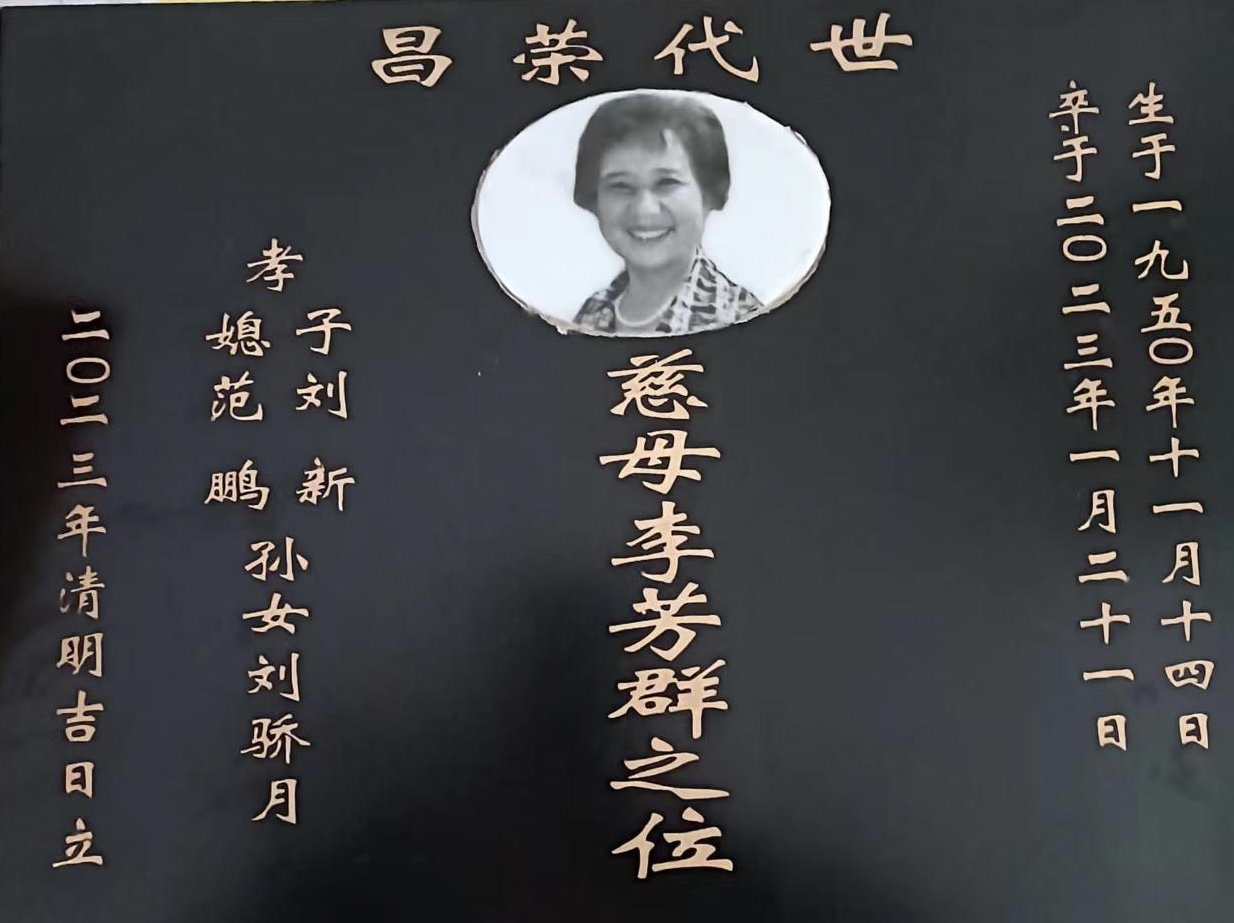 世代荣昌
生于一九五〇年十一月十四日
卒于二〇二三年一月二十一日
慈母李芳群之位
孝
子刘新
媳范鹏
孙女刘骄月
二〇二三年清明吉日立